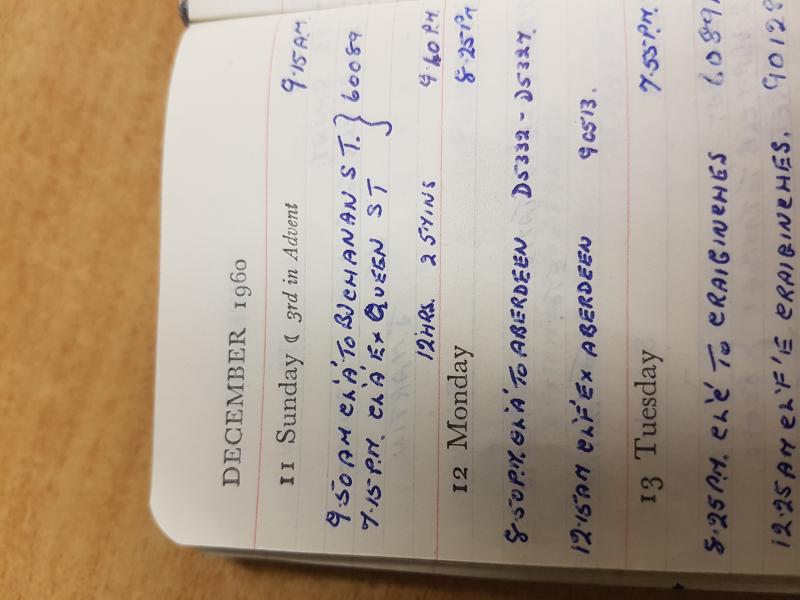 DECEMBER 1960
11 Sunday ☾ 3rd in Advent 9.15 A.M.
9.50 AM CL'A' TO BUCHANAN ST. } 60089
7.15 P.M. CL'A' EX QUEEN ST
12 HRS. 25 MINS 9.40 P.M
12 Monday 8.25 PM
8.50 P.M. CL'A' TO ABERDEEN D5332 - D5327.
12.15 AM CL'F' EX ABERDEEN 90513.
13 Tuesday 7.55 P.M.
8.25 P.M. CL'C' TO CRAIGINCHES 6089
12.25 AM CL'F' E CRAIGINCHES. 9012